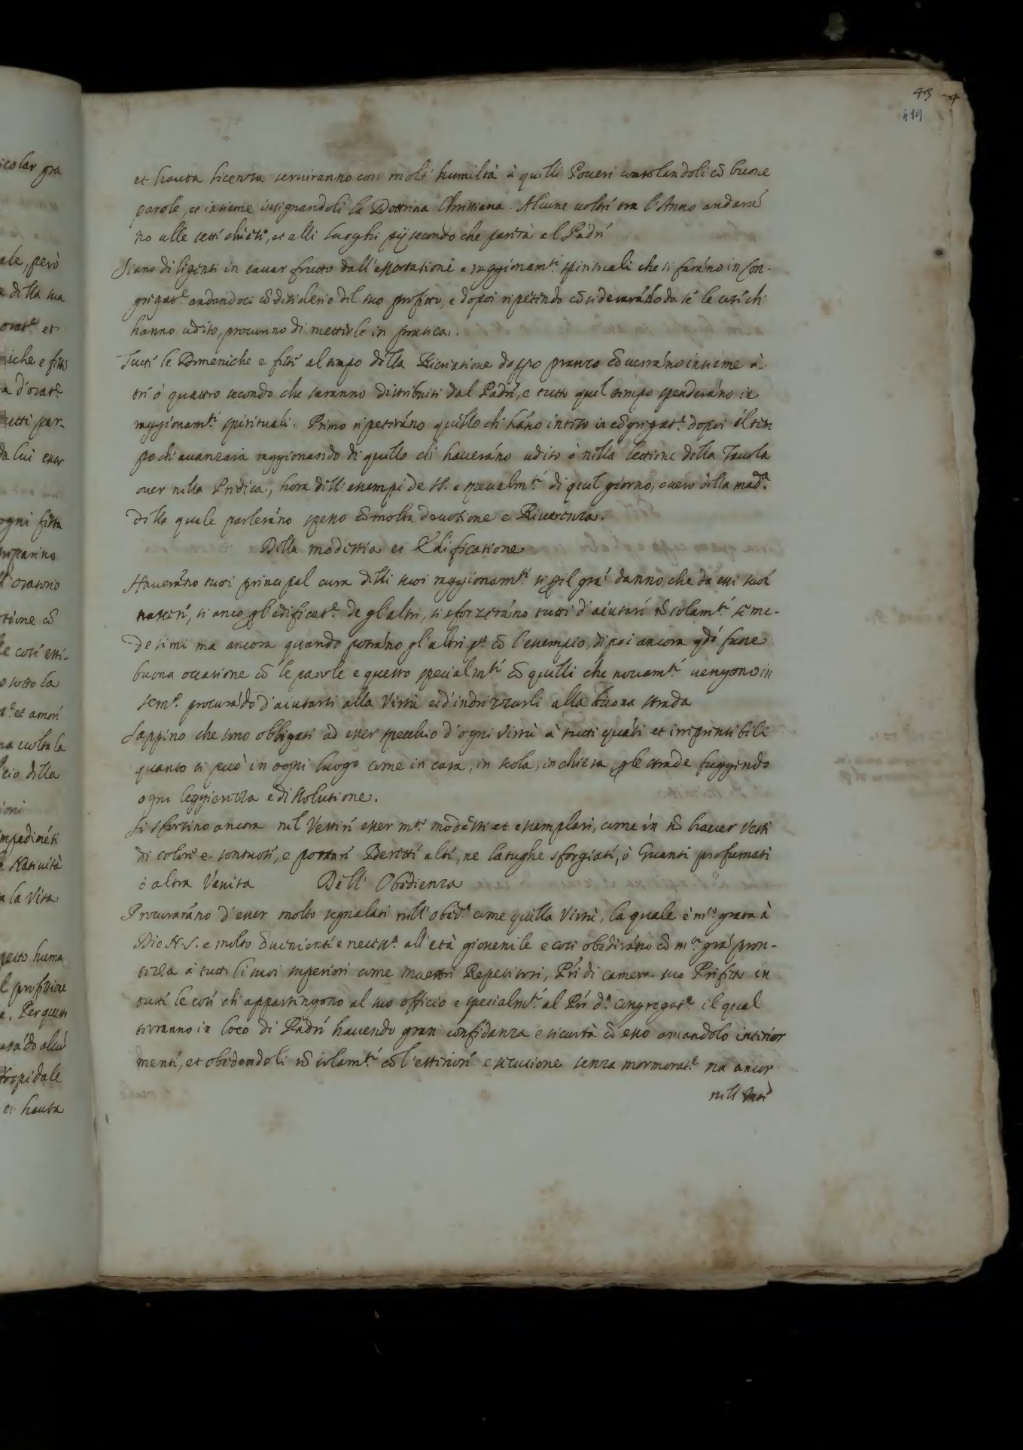 43
419
et hauta licenza serviranno con molt' humiltà à quelli Poveri consolandoli cõ buone
parole, et insieme insegnandoli la Dottrina Christiana. Alcune volte tra l'Anno andarã
no alle sette chiese, et alli luoghi pij secondo che parirà al Padre
Siano diligenti in cavar frutto dall'essortationi e raggionam.ti spirituali che si farãno in Con-
gregat.e andandoci cõ desiderio del suo profitto, e dopoi ripetendo cõsiderarãdo da se le cose ch
hanno udito, procurino di metterle in pratica.
Tutte le Domeniche e feste al tempo della Ricreatione doppo pranzo cõverrãno insieme à
tre ò quattro secondo che saranno distribuiti dal Padre, e tutto quel tempo spenderãno in
raggionam.ti spirituali. Primo ripeterãno quello ch hãno inteso in cõgregat.e dopoi il tem
po ch avanzarà raggionando di quello ch haverãno udito ò nella lettione della Tavola
over nella Predica, hora dell' essempi de SS. e specialm.te di quel giorno, overo della mad.a
della quale parlerãno spesso cõ molta devotione e Riverenza.
Della modestia et Edificatione
Haverãno tutti principal cura delli suoi raggionam.ti si pel grã danno, che da essi suol
nascere, si anco p l'edificat.e de gl'altri, si sforzerãno tutti d'aiutare nõ solam.te se me-
desimi ma ancora quando potrãno gl'altri p.a cõ l'essempio, di poi ancora qdo sarà
buona occasione cõ le parole e questo specialm.te cõ quelli che novam.te vengono in
Sem.o procurãdo d'aiutarli alla Virtù et d'indrizzarli alla buona strada
Sappino che sono obbligati ad esser specchio d'ogni virtù à tutti quãti et irriprensibili
quanto si può in ogni luogo come in casa, in scola, in chiesa, p le strade fuggendo
ogni leggierezza e dissolutione.
Si sforzino ancora nel Vestire esser m.to modesti et essemplari, come in nõ haver vesti
di colori e sontuosi, e portare Berette alte, ne latughe sforgiate, ò Guanti profumati
ò altra Vanita Dell' Obedienza
Procurarãno d'esser molto segnalati nell'obed.a come quella Virtù, la quale è m.to grata à
Dio N.S. e molto cõveniente e necess.a all'età giovenile e così obedirãno cõ m.ta grã pron-
tezza à tutti li suoi superiori come maestri Repetitori, Pri di camera suo Prefetto in
tutte le cose ch appartengono al suo officio e specialm.te al Pre d.a congregat.e il qual
terranno in loco di Padre havendo gran confidanza e sicurtà cõ esso amandolo interior
mente, et obedendoli nõ solam.te cõ l'esteriore essecutione senza mormorat.e ma ancor
nell'inte
icolar gra
ale, però
a della sua
orat.e et
iche e feste
a d'orat.e
etti par-
da lui esser
ogni festa
l'orationo
tione cõ
le cose essi-
o sotto la
a.e et amore
na cosa la
icio della
ioni
mpedimẽti
è Natività
a la Vita
petto huma
l profitione
a. Per questi
ospidale
et hauta